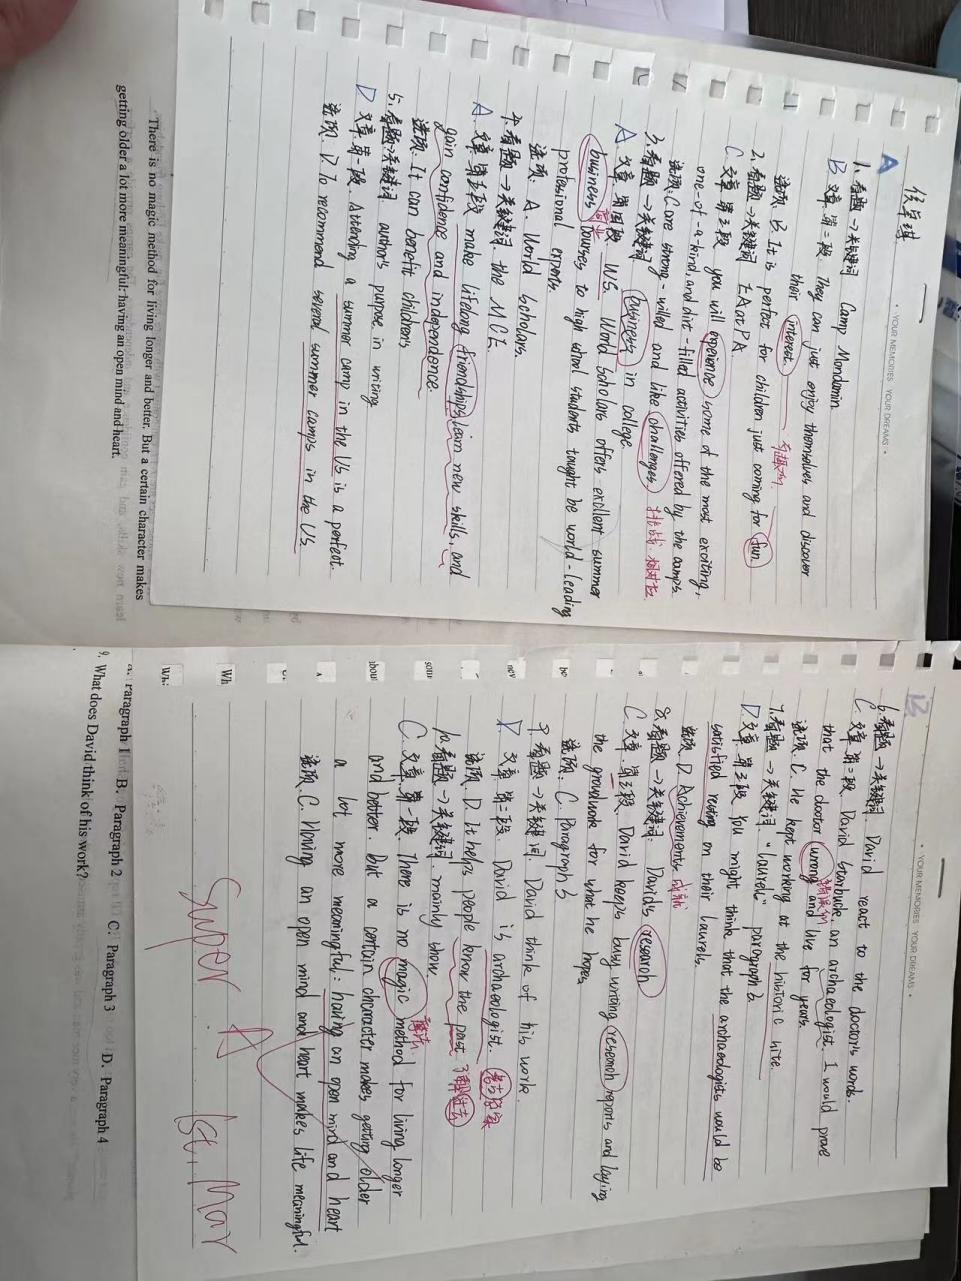 • YOUR MEMORIES YOUR DREAMS •
A
1. 看题 → 关键词 Camp Mondamin
B 文章第二段. They can just enjoy themselves and discover
their interest.
有趣的.
选项 B. It is perfect for children just coming for fun.
2. 看题 → 关键词 EAatPA
C 文章第三段 you will experience some of the most exciting,
one-of-a-kind, and dirt-filled activities offered by the camps
选项: C are strong-willed and like challenges. 挑战.
3. 看题 → 关键词 business in college.
A 文章 第四段 WS. World Scholars offers excellent summer
business courses to high school students tought be world-leading
商业
professional experts.
选项: A. World scholars.
4. 看题 → 关键词. the MCE.
A. 文章 第五段 make lifelong friendships, learn new skills, and
gain confidence and independence.
选项: It can benefit children
5. 看题 → 关键词 author's purpose in writing
D 文章 第一段 Attending a summer camp in the US is a perfect.
选项. D To recommend several summer camps in the US.
There is no magic method for living longer and better. But a certain character makes
getting older a lot more meaningful: having an open mind and heart.
• YOUR MEMORIES YOUR DREAMS •
B.
6. 看题 → 关键词 David react to the doctor's words.
C. 文章 第二段. David Starbuck, an archaeologist. I would prove
that the doctor wrong and live for years.
选项. C. He kept working at the historic site.
7. 看题 → 关键词 "laurels" paragraph 2.
D 文章. 第三段 You might think that the archaeologists would be
satisfied resting on their laurels.
选项. D Achievements. 成就
8. 看题 → 关键词: David's research
C 文章. 第三段. David keeps busy writing research reports and laying
the groudwork for what he hopes
选项. C. Paragraph 3
9. 看题 → 关键词. David think of his work.
D 文章. 第二段. David is archaeologist. 考古学家
选项. D It helps people know the past 了解过去
10. 看题 → 关键词. mainly show.
C. 文章. 第一段. There is no magic method for living longer
魔法
and better. But a certain character makes getting older
a lot more meaningful: having an open mind and heart
选项. C. Having an open mind and heart makes life meaningful.
Super A 1st, Mar
Paragraph 1 B. Paragraph 2 C. Paragraph 3 D. Paragraph 4
9. What does David think of his work?